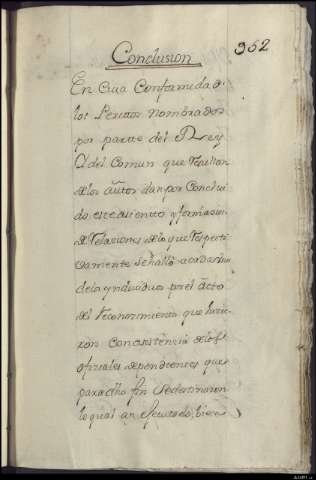 Conclusion 352
En Cuia Conformidad
los Peritos nombrados
por parte del Rey
Y del Comun que resultan
de los autos dan por Conclui
do este asiento y firmacion
de Relaciones de lo que respecti
vamente se halló a cada uno
de los Yndividuos en el acto
del reconocimiento que hicie
ron con asistencia de los
oficiales dependientes que
para dho fin se destinaron
lo qual an Executado, bien